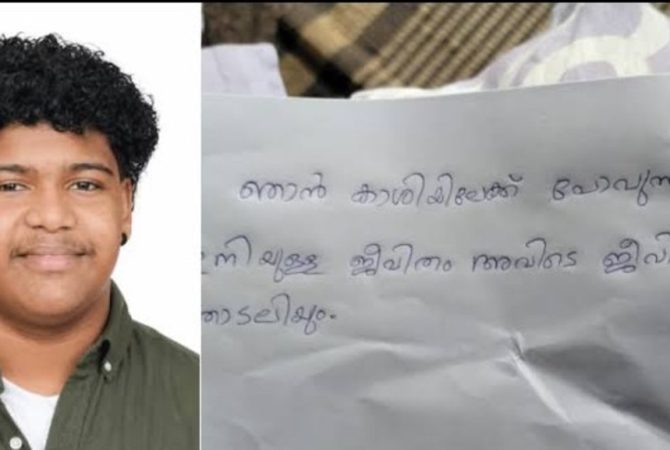 ഞാൻ കാശിയിലേക്ക് പോവുന്ന
ഇനിയുള്ള ജീവിതം അവിടെ ജീവി